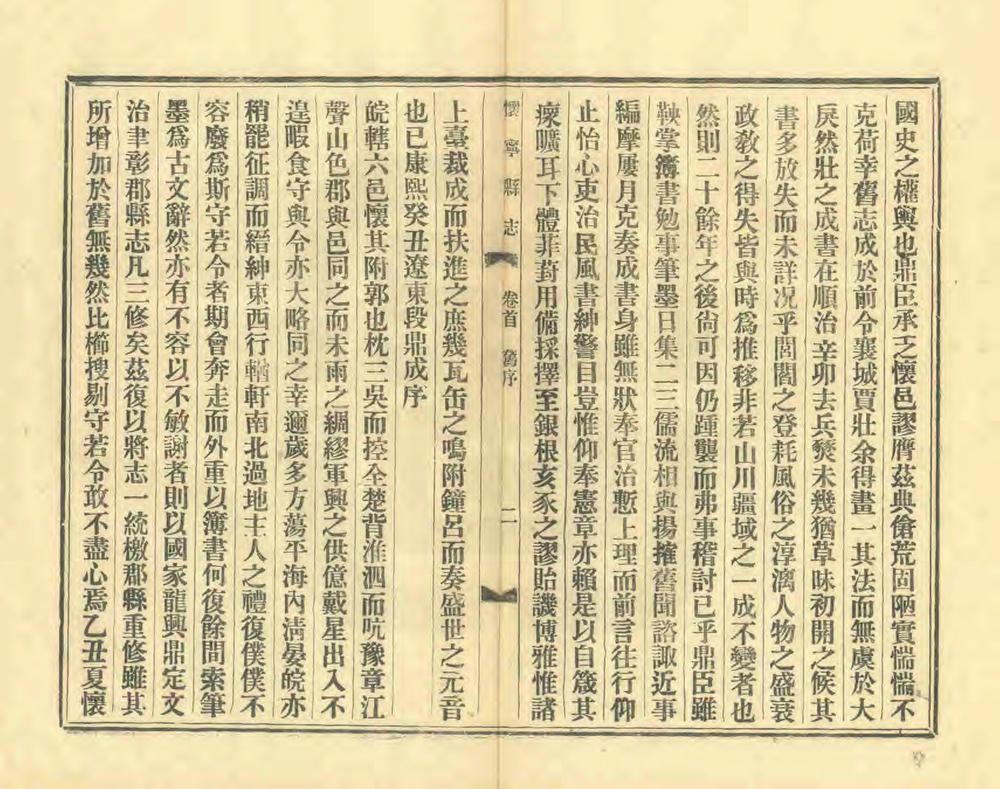 國史之權輿也鼎臣承乏懷邑謬膺茲典傖荒固陋實惴惴不
克荷幸舊志成於前令襄城賈壯余得畫一其法而無虞於大
戾然壯之成書在順治辛卯去兵燹未幾猶草昧初開之候其
書多放失而未詳况乎閭閻之登耗風俗之淳漓人物之盛衰
政教之得失皆與時爲推移非若山川疆域之一成不變者也
然則二十餘年之後尙可因仍踵襲而弗事稽討已乎鼎臣雖
鞅掌簿書勉事筆墨日集二三儒流相與揚搉舊聞諮諏近事
編摩屢月克奏成書身雖無狀奉官治慙上理而前言往行仰
止怡心吏治民風書紳警目豈惟仰奉憲章亦賴是以自箴其
瘝曠耳下體菲葑用備採擇至銀根亥豕之謬貽譏博雅惟諸
懷寧縣志 卷首 舊序 二
上臺裁成而扶進之庶幾瓦缶之鳴附鐘呂而奏盛世之元音
也已康熙癸丑遼東段鼎成序
皖轄六邑懷其附郭也枕三吳而控全楚背淮泗而吭豫章江
聲山色郡與邑同之而未雨之綢繆軍興之供億戴星出入不
遑暇食守與令亦大略同之幸邇歲多方蕩平海內淸晏皖亦
稍罷征調而縉紳東西行輶軒南北過地主人之禮復僕僕不
容廢爲斯守若令者期會奔走而外重以簿書何復餘間索筆
墨爲古文辭然亦有不容以不敏謝者則以國家龍興鼎定文
治聿彰郡縣志凡三修矣茲復以將志一統檄郡縣重修雖其
所增加於舊無幾然比櫛搜剔守若令敢不盡心焉乙丑夏懷